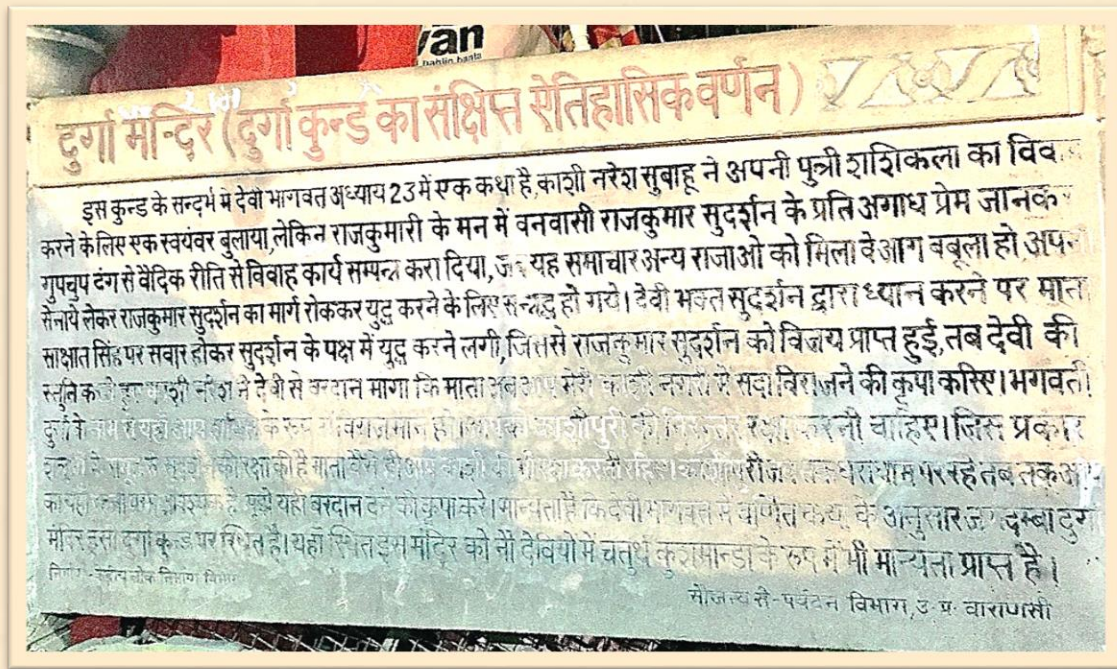 van
bahlin.baata
दुर्गा मन्दिर (दुर्गा कुन्ड का संक्षिप्त ऐतिहासिक वर्णन)
इस कुन्ड के सन्दर्भ मे देवी भागवत अध्याय 23 में एक कथा है, काशी नरेश सुबाहू ने अपनी पुत्री शशिकला का
करने के लिए एक स्वयंवर बुलाया, लेकिन राजकुमारी के मन में वनवासी राजकुमार सुदर्शन के प्रति अगाध प्रेम जानकर
गुपचुप ढंग से वैदिक रीति से विवाह कार्य सम्पन्न करा दिया, जब यह समाचार अन्य राजाओ को मिला वे आग बबूला हो अपनी
सेनाये लेकर राजकुमार सुदर्शन का मार्ग रोककर युद्ध करने के लिए सन्नद्ध हो गये। देवी भक्त सुदर्शन द्वारा ध्यान करने पर
साक्षात सिंह पर सवार होकर सुदर्शन के पक्ष में युद्ध करने लगी, जिससे राजकुमार सुदर्शन को विजय प्राप्त हुई, तब देवी की
स्तुति नरेश ने देवी से वरदान मागा कि माता अब आप मेरी काशी नगरी में सदा विराजने की कृपा करिए। भगवती
दुर्गा के के रूप काशीपुरी की निरन्तर रक्षा करनी चाहिए। जिस प्रकार
की रक्षा की है माता वैसे ही आप पर रहे तब तक
वरदान देने की कृपा करे। मान्यता है कि देवी भागवत में वर्णित कथा के अनुसार जगदम्बा दुर्गा
मंदिर इसी दुर्गा कुन्ड पर स्थित है। यहां स्थित इस मंदिर को नौ देवियो मे चतुर्थ कुशमान्डा के रूप में भी मान्यता प्राप्त है।
लोक निर्माण विभाग
सौजन्य से - पर्यटन विभाग, उ. प्र. वाराणसी